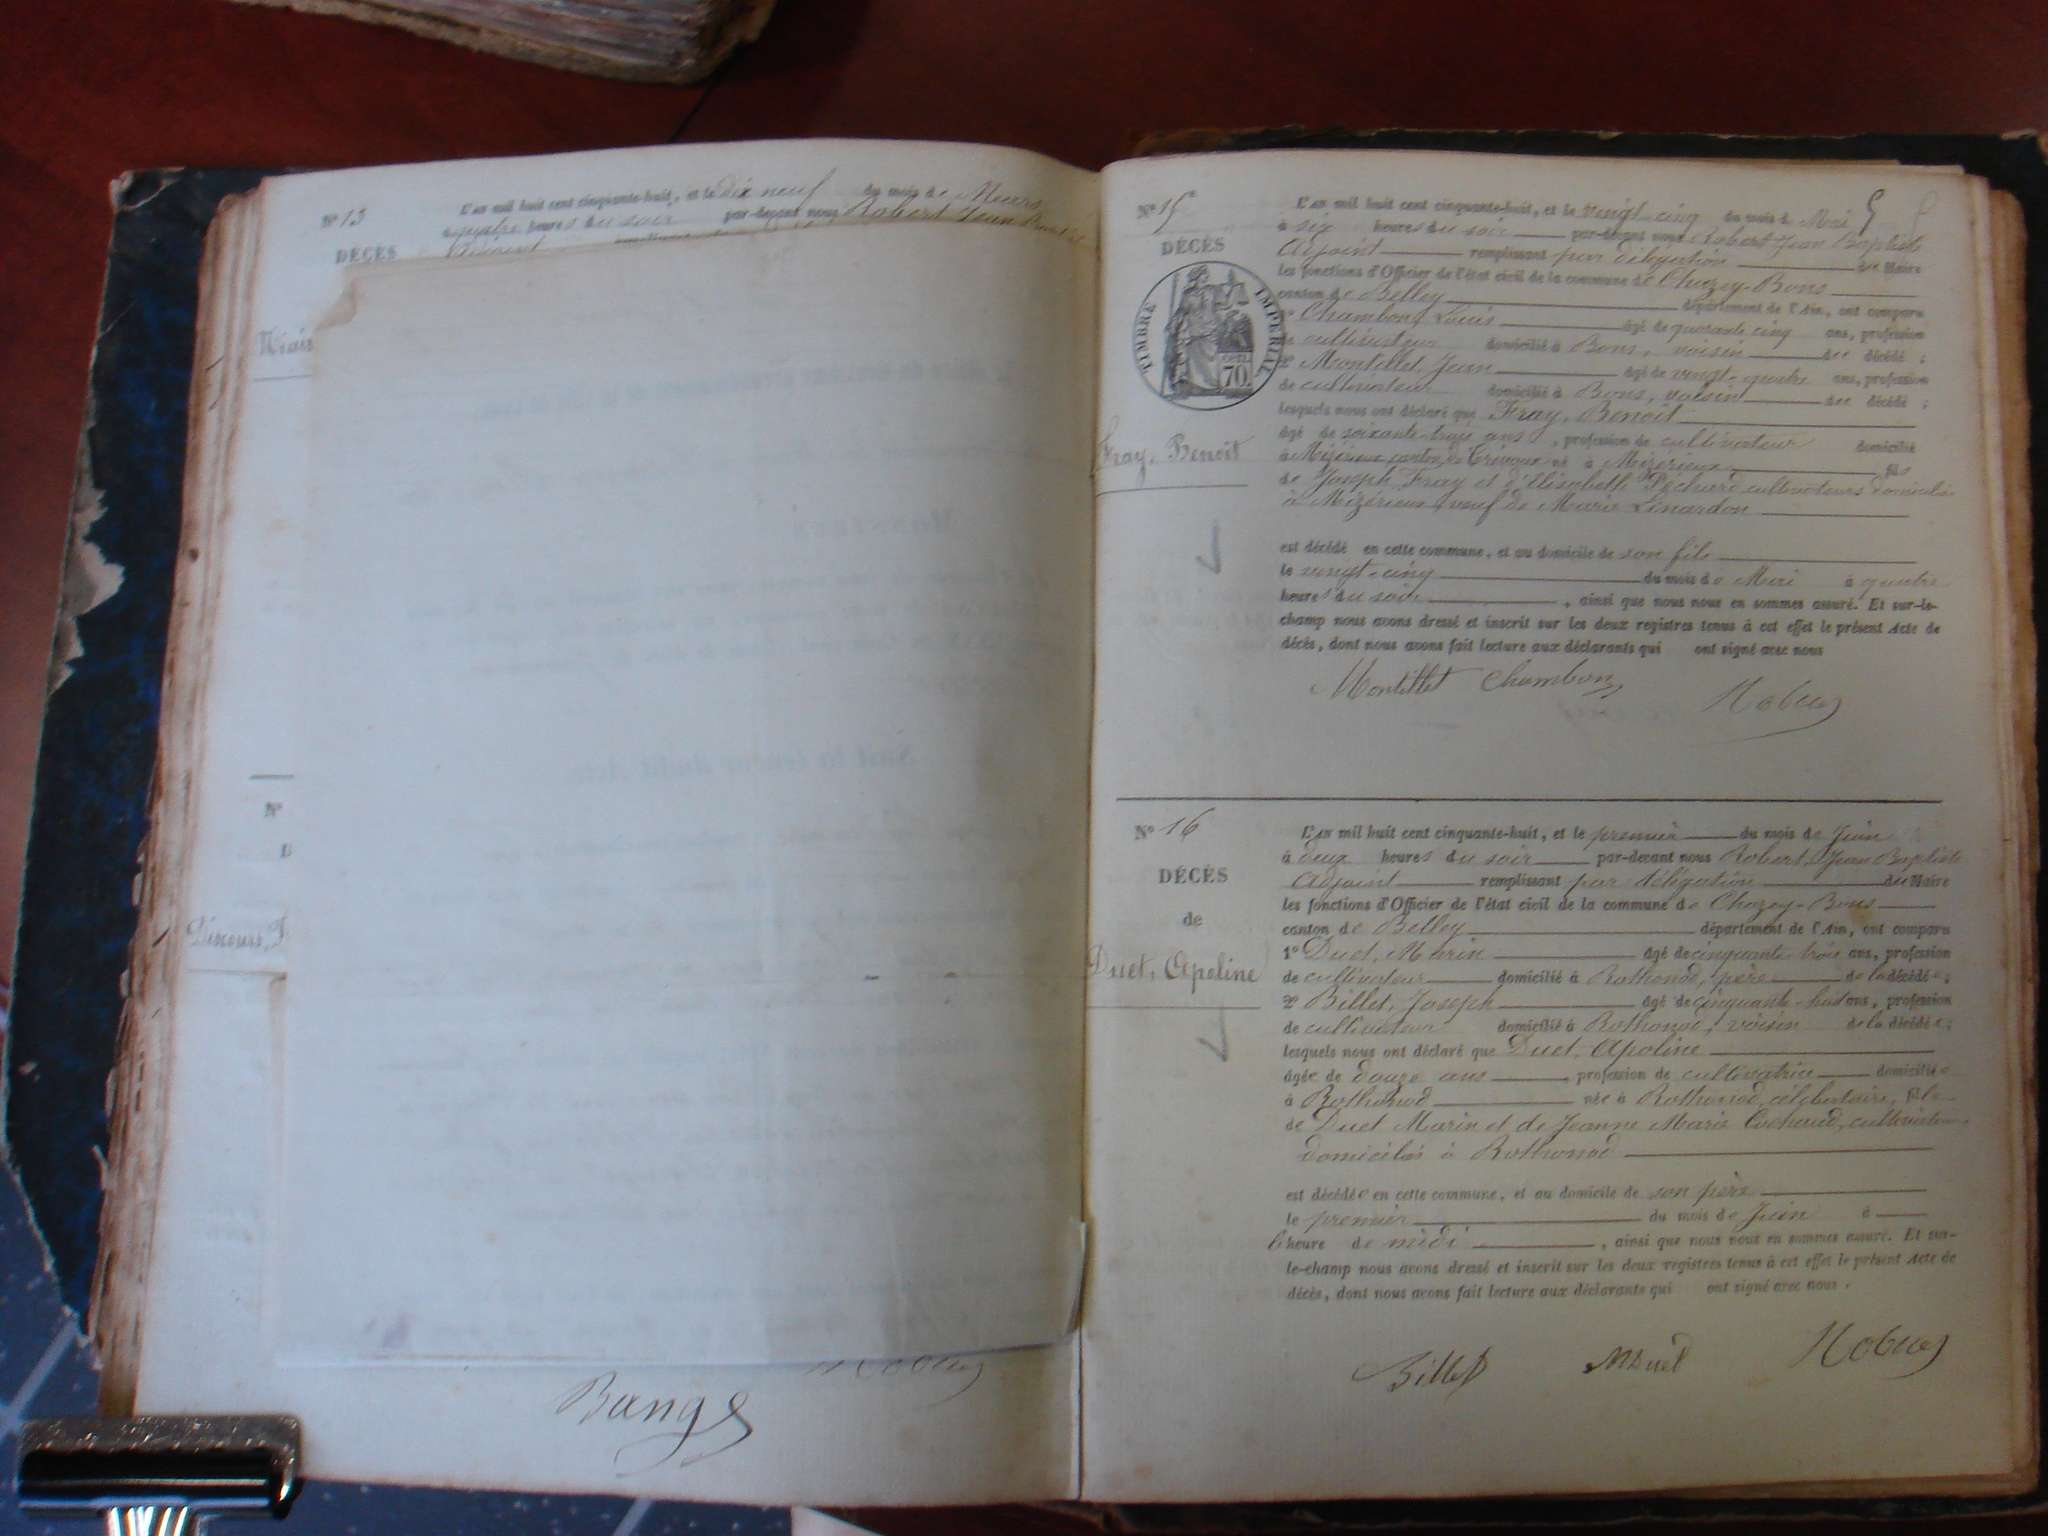 N° 13
L'AN mil huit cent cinquante-huit, et le dix neuf du mois de Mars
à quatre heures du soir par-devant nous Robert Jean
DÉCÈS
N°
Discours,
Bange
N° 15
L'AN mil huit cent cinquante-huit, et le vingt-cinq du mois de Mai
à six heures du soir par-devant nous Robert Jean Baptiste
DÉCÈS
Adjoint remplissant par délégation du Maire
les fonctions d'Officier de l'état civil de la commune de Chazey-Bons
canton de Belley département de l'Ain, ont comparu
TIMBRE IMPÉRIAL
70.
1° Chambon, Louis âgé de quarante cinq ans, profession
de cultivateur domicilié à Bons, voisin du décédé ;
2° Montillet, Jean âgé de vingt-quatre ans, profession
de cultivateur domicilié à Bons, voisin du décédé ;
lesquels nous ont déclaré que Fray, Benoit
Fray, Benoit
âgé de soixante-trois ans, profession de cultivateur domicilié
à Mizérieux canton de Trévoux né à Mizérieux, fils
de Joseph Fray et d'Elisabeth Péchard cultivateurs domiciliés
à Mizérieux, veuf de Marie Linardon
est décédé en cette commune, et au domicile de son fils
le vingt-cinq du mois de Mai à quatre
heures du soir, ainsi que nous nous en sommes assuré. Et sur-le-
champ nous avons dressé et inscrit sur les deux registres tenus à cet effet le présent Acte de
décès, dont nous avons fait lecture aux déclarants qui ont signé avec nous
Montillet Chambon
N° 16
L'AN mil huit cent cinquante-huit, et le premier du mois de Juin
à deux heures du soir par-devant nous Robert, Jean Baptiste
DÉCÈS
Adjoint remplissant par délégation du Maire
les fonctions d'Officier de l'état civil de la commune de Chazey-Bons
de
canton de Belley département de l'Ain, ont comparu
1° Duet, Marin âgé de cinquante trois ans, profession
Duet, Apoline
de cultivateur domicilié à Rothonod, père de la décédée ;
2° Billet, Joseph âgé de cinquante-huit ans, profession
de cultivateur domicilié à Rothonod, voisin de la décédée ;
lesquels nous ont déclaré que Duet, Apoline
âgée de douze ans, profession de cultivatrice domiciliée
à Rothonod née à Rothonod, célibataire, fille
de Duet Marin et de Jeanne Marie Cochaud, cultivateurs
domiciliés à Rothonod
est décédée en cette commune, et au domicile de son père
le premier du mois de Juin à
l'heure de midi, ainsi que nous nous en sommes assuré. Et sur-
le-champ nous avons dressé et inscrit sur les deux registres tenus à cet effet le présent Acte de
décès, dont nous avons fait lecture aux déclarants qui ont signé avec nous.
Billet MDuet